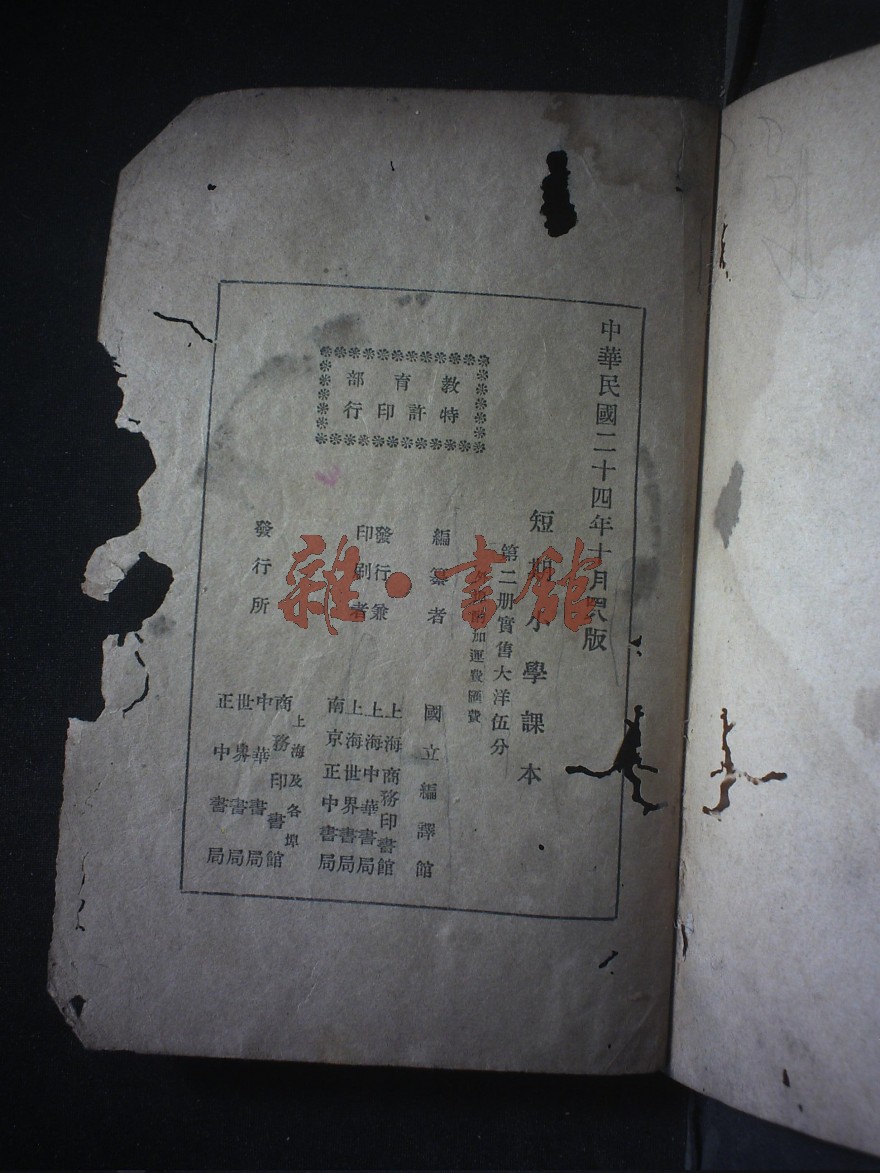 中華民國二十四年十月 版
短期小學課本
第二册實售大洋伍分
加運費匯費
教育部
特許印行
編纂者
國立編譯館
發行兼
印刷者
上海商務印書館
上海中華書局
上海世界書局
南京正中書局
發行所
上海及各埠
商務印書館
中華書局
世界書局
正中書局
雜·書館